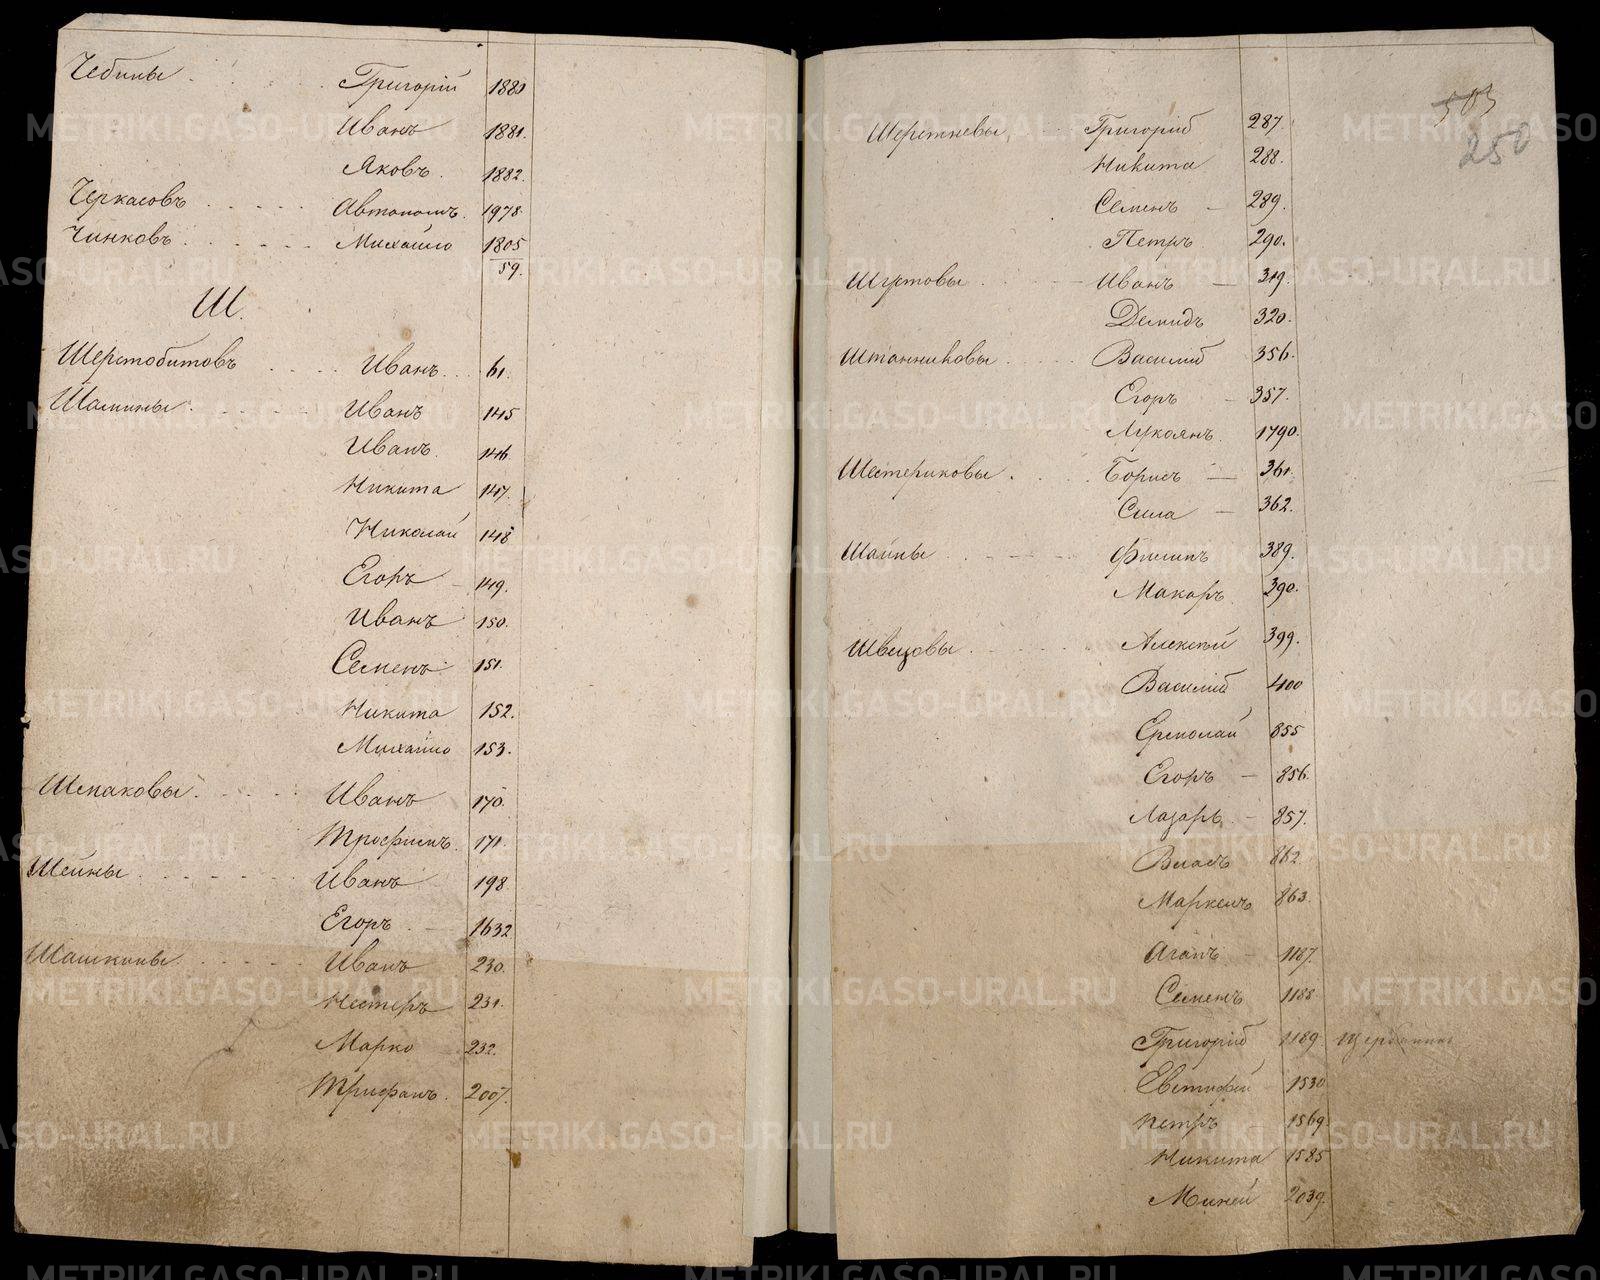 Чебины Григорій 1880
Иванъ 1881.
Яковъ. 1882.
Черкасовъ Автономъ. 1978.
Чинковъ Михайло 1805
59.
Ш.
Шерстобитовъ Иванъ 61.
Шамины Иванъ 145
Иванъ. 146
Никита 147.
Николай 148
Егоръ 149.
Иванъ 150.
Семенъ 151.
Никита 152.
Михайло 153.
Шепаковы Иванъ 170.
Трофимъ. 171.
Шеины Иванъ 198
Егоръ 1632
Шашкины Иванъ 230.
Нестеръ 231.
Марко 232.
Трифанъ. 2007.
503
250
Шеретневы Григорій 287.
Никита 288.
Семенъ 289.
Петръ 290.
Шуртовы Иванъ 319.
Демидъ 320.
Штанниковы Василій 356.
Егоръ 357.
Лукоянъ 1790.
Шестериковы Борисъ 361.
Сила 362.
Шаины Филипъ 389.
Макаръ 390.
Швецовы Алексѣй 399.
Василій 400
Ермолай 855
Егоръ 856.
Лазарь 857.
Власъ 862
Маркелъ 863.
Агапъ 1187.
Семенъ 1188
Григорій 1189
Евстифей 1530
Петръ 1569
Никита 1585
Миней 2039.
METRIKI.GASO-URAL.RU